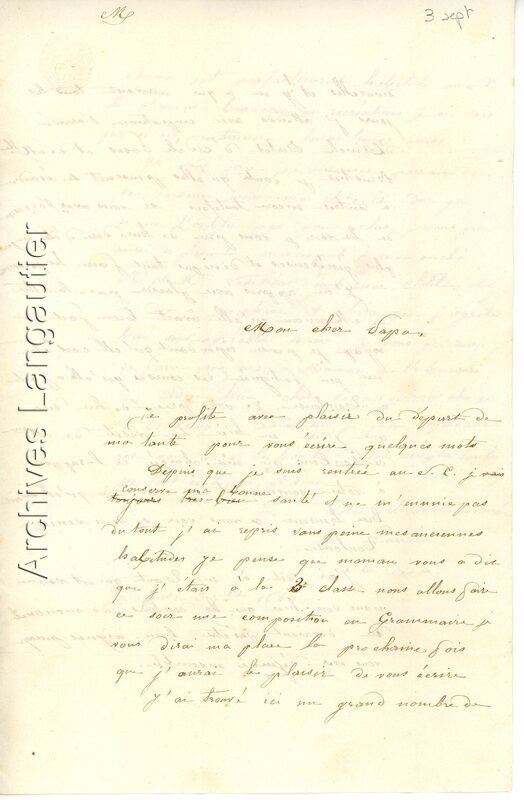 M
3 sept
Archives Langautier
Mon cher Papa,
Je profite avec plaisir du départ de
ma tante pour vous écrire quelques mots
Depuis que je suis rentrée au S. C. je vais
conserve ma bonne
toujours très bien santé et ne m'ennuie pas
du tout j'ai repris sans peine mes anciennes
habitudes je pense que maman vous a dit
que j'étais à la classe nous allons faire
ce soir une composition en Grammaire je
vous dirai ma place la prochaine fois
que j'aurai le plaisir de vous écrire
J'ai trouvé ici un grand nombre de